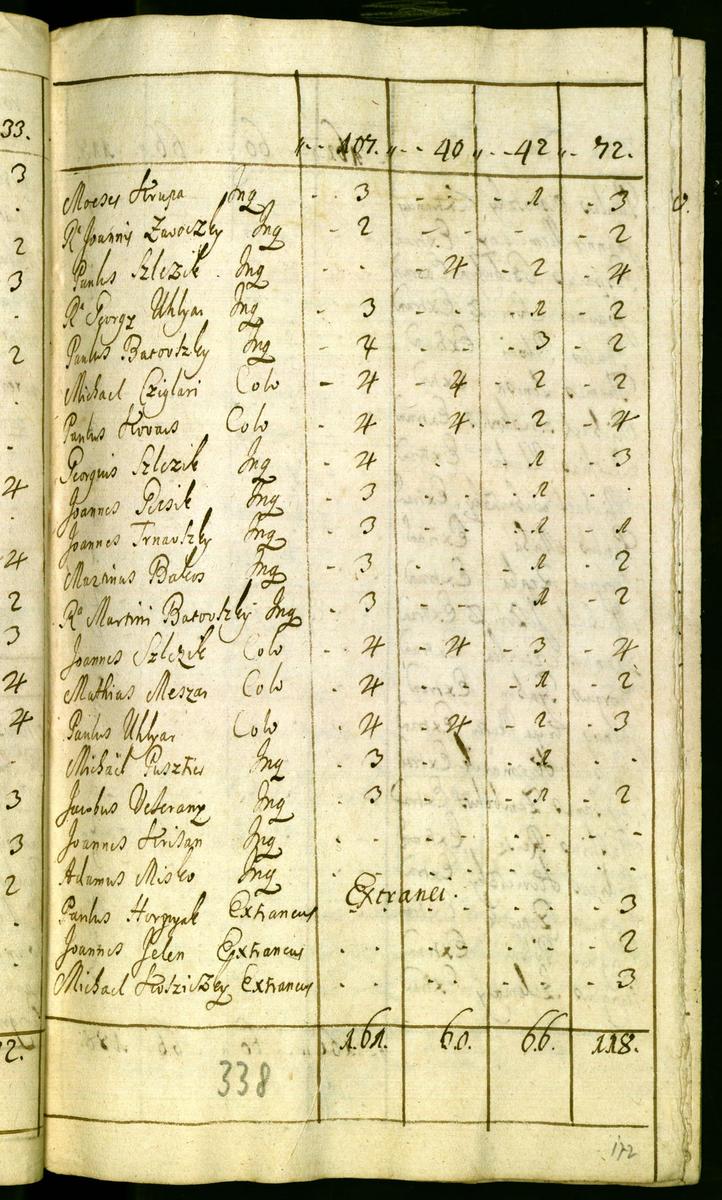 33.
„ . . 107. „ . . 40 „ . . 42 „ . . 72.
Moeses Krupa Inq . . 3 - . . 1 - 3
Rta Joannis Zavoczky Inq - 2 - - - - - 2
Paulus Szlezik Inq - . . 4 - 2 - 4
Rta Georgy Uhlyar Inq - 3 - . . 1 - 2
Paulus Barovszky Inq - 4 - . - 3 - 2
Michael Cziglari Colo - 4 - 4 - 2 - 2
Paulus Kovacs Colo - 4 - 4 - 2 - 4
Georgius Szlezik Inq - 4 . . . 1 - 3
Joannes Pesik Inq - 3 - . - 1 - .
Joannes Trnavszky Inq - 3 - . . 1 - 1
Martinus Bakos Inq - 3 - . - 1 - 2
Ra Martini Barovszky Inq . 3 - - . 1 - 2
Joannes Szlezik Colo - 4 - 4 - 3 - 4
Mathias Meszar Colo - 4 - . - 1 - 2
Paulus Uhlyar Colo - 4 - 4 - 2 - 3
Michael Pusztai Inq - 3 - . . 1 . .
Jacobus Veterany Inq - 3 - . - 1 - 2
Joannes Krisan Inq . . . . . . - -
Adamus Misko Inq . . . . . . . .
Extranei.
Paulus Horgnyak Extraneus . . . . . . . 3
Joannes Jelen Extraneus . . . . . . . 2
Michael Extraneus . . . . . . . 3
161. 60. 66. 118.
338
172